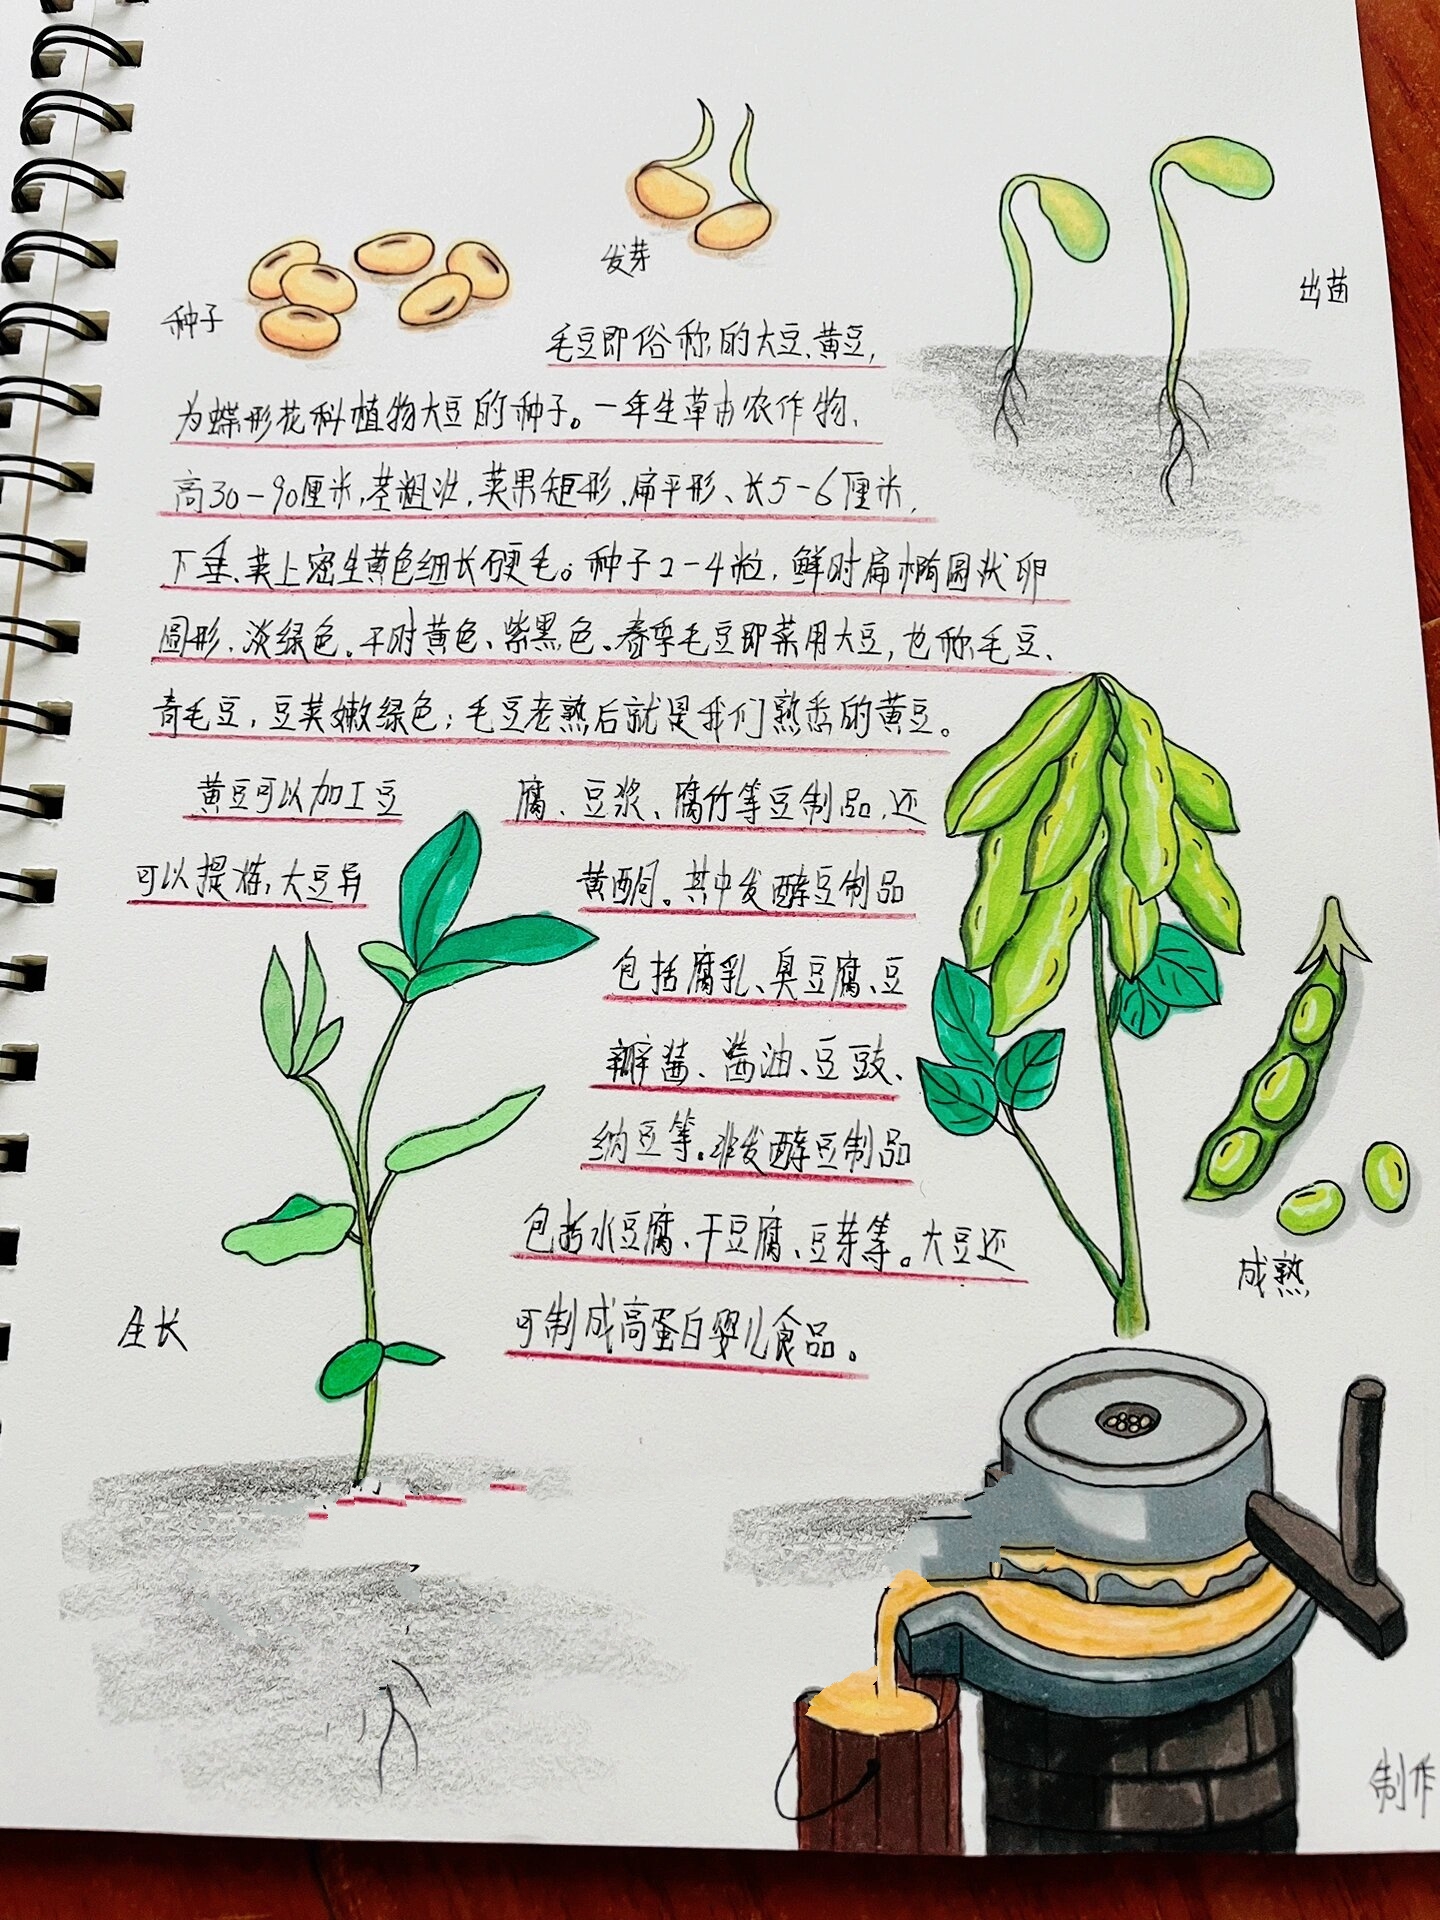 发芽
出苗
种子
毛豆即俗称的大豆、黄豆,
为蝶形花科植物大豆的种子。一年生草本农作物、
高30-90厘米,茎粗壮,荚果矩形、扁平形、长5-6厘米,
下垂、荚上密生黄色细长硬毛。种子2-4粒,鲜时扁椭圆状卵
圆形、淡绿色。干时黄色、紫黑色。春季毛豆即菜用大豆,也称毛豆、
青毛豆,豆荚嫩绿色;毛豆老熟后就是我们熟悉的黄豆。
黄豆可以加工豆腐、豆浆、腐竹等豆制品,还
可以提炼大豆异黄酮。其中发酵豆制品
包括腐乳、臭豆腐、豆
瓣酱、酱油、豆豉、
纳豆等。非发酵豆制品
包括水豆腐、干豆腐、豆芽等。大豆还
可制成高蛋白婴儿食品。
成熟
生长
制作